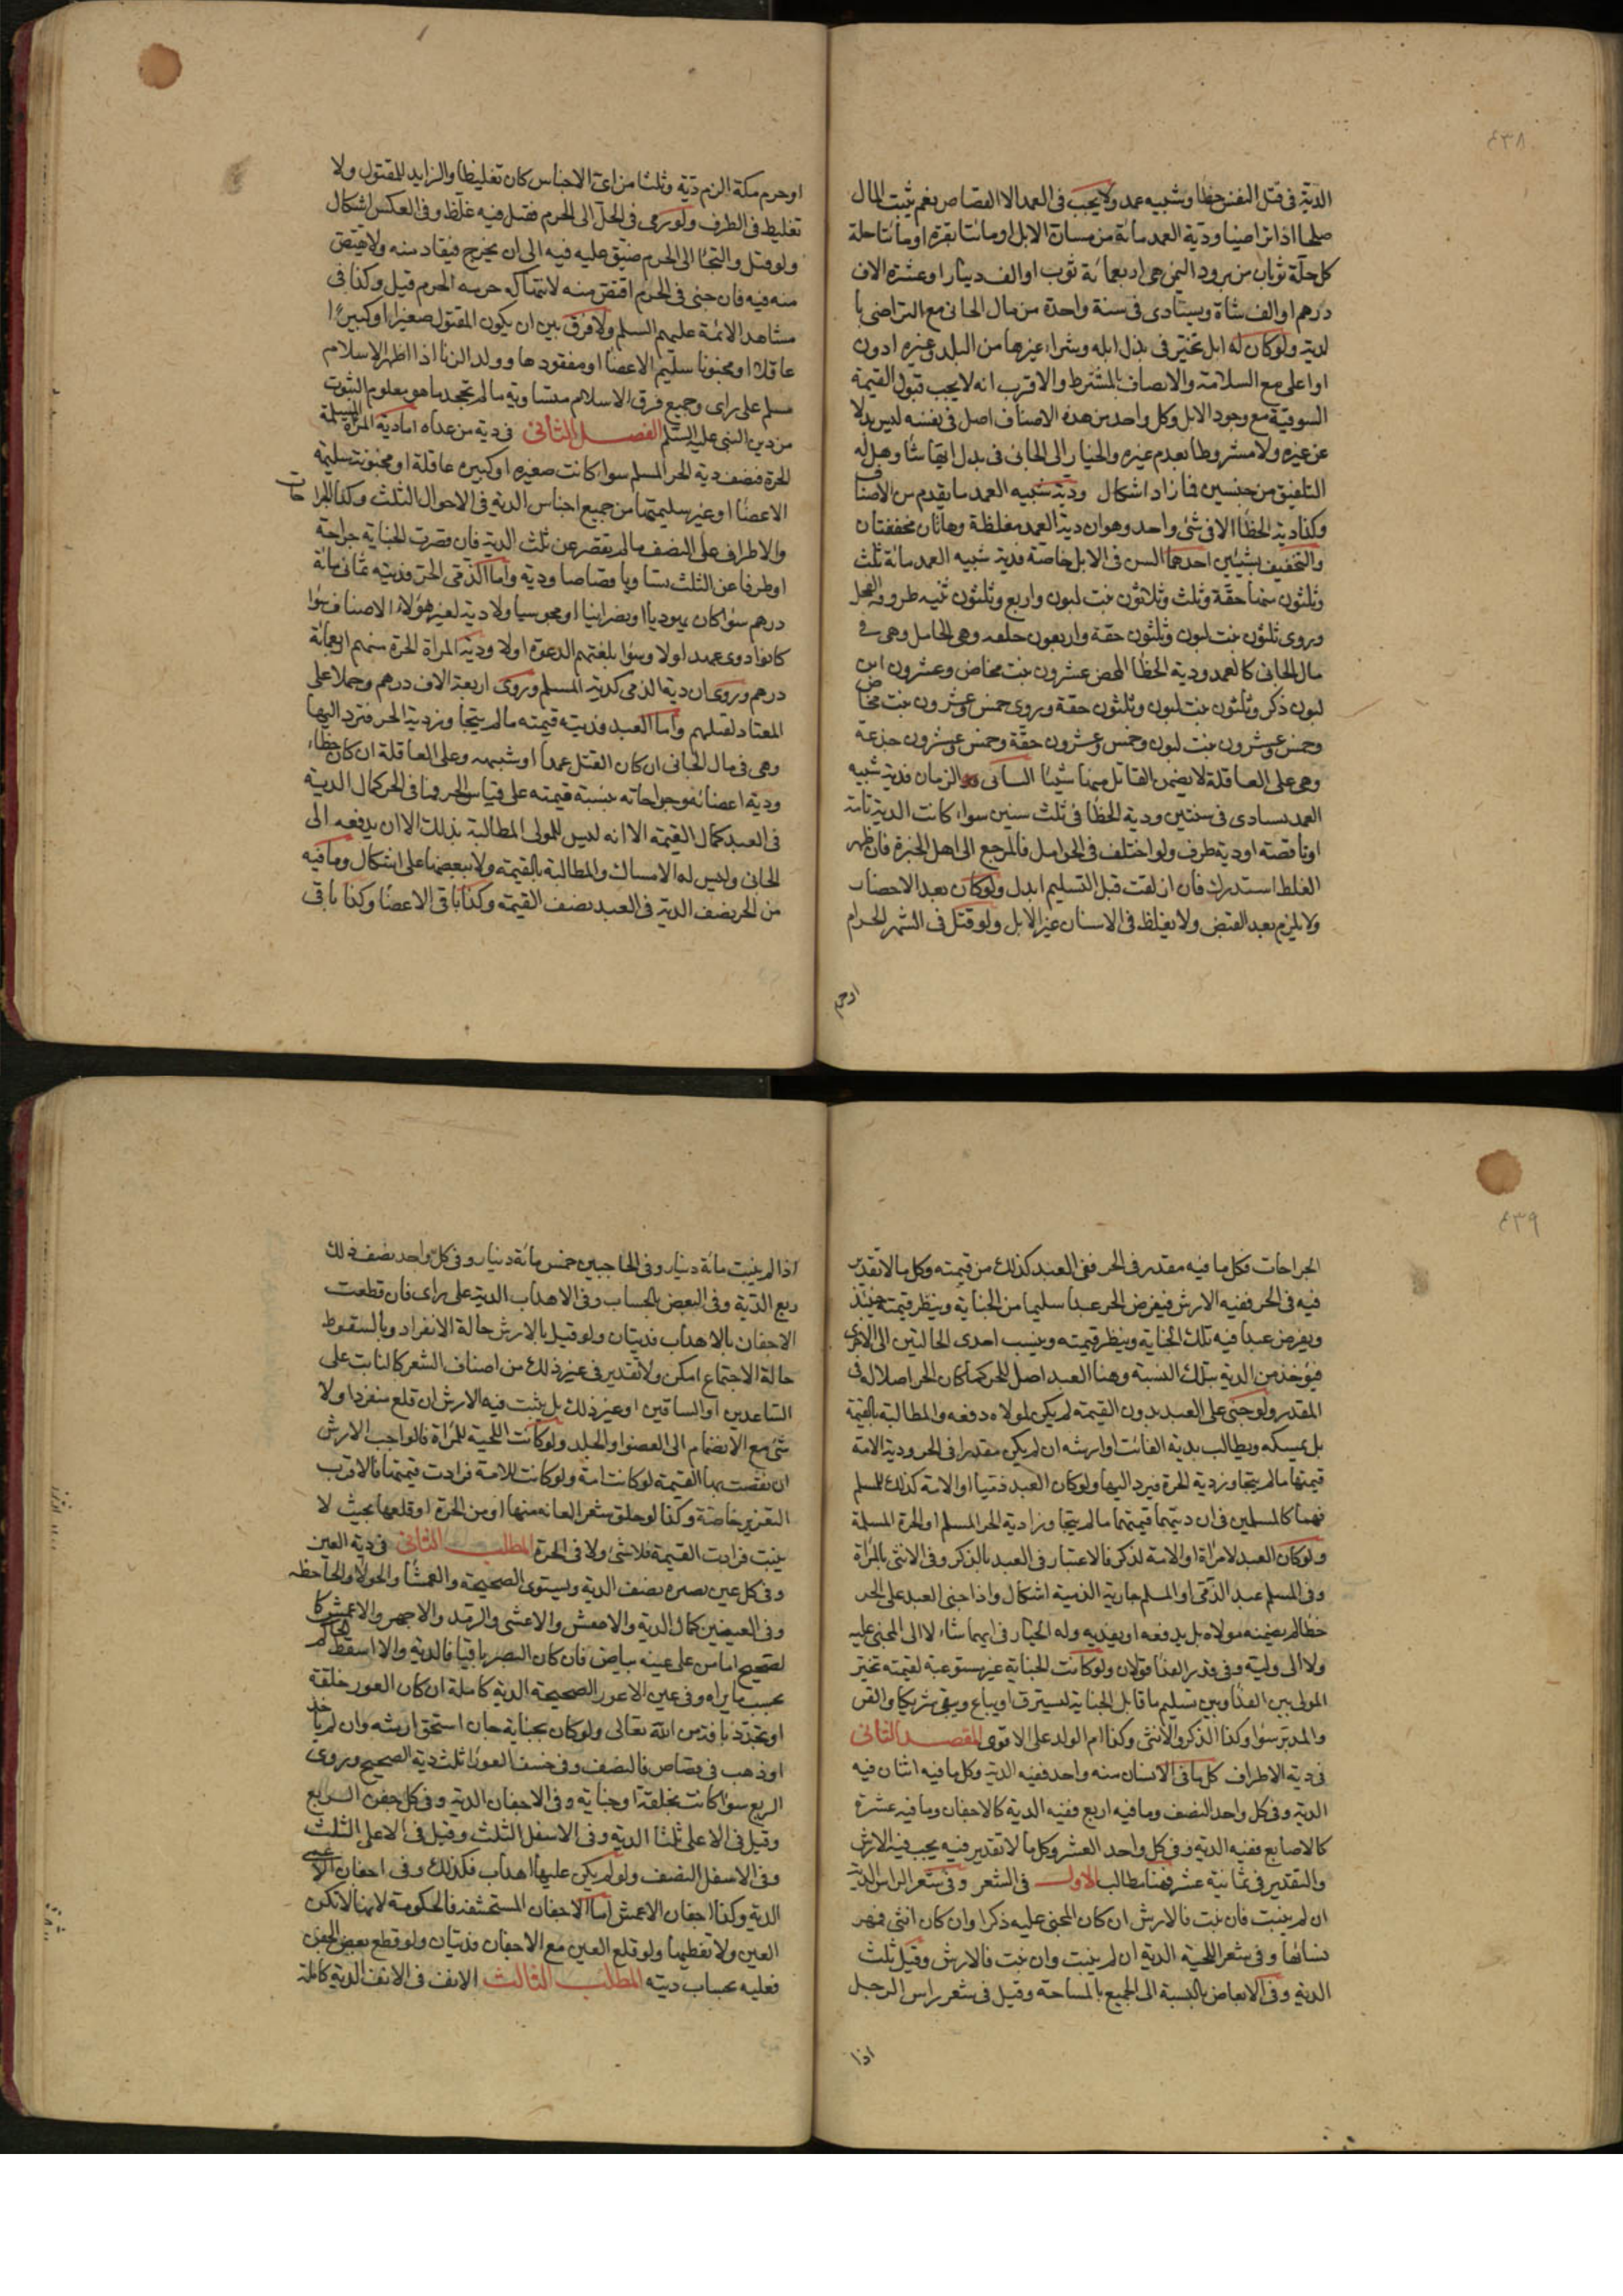 ٤٣٨
الدية فى قتل النفس خطا وشبيه عمد ولا يجب فى العمد الا القصاص نعم يثبت المال
صلحا اذا تراضيا ودية العمد مائة من مسان الابل او مائتا بقرة او مائتا حلة
كل حلة ثوبان من برود اليمن هى اربعمائة ثوب او الف دينار او عشرة الاف
درهم او الف شاة ويستادى فى سنة واحدة من مال الجانى مع التراضى با
لدية ولو كان له ابل تخير فى بذل ابله وشراء غيرها من البلد وغيره ادون
او اعلى مع السلامة والاتصاف بالمشترط والاقرب انه لا يجب قبول القيمة
السوقية مع وجود الابل وكل واحد من هذه الاصناف اصل فى نفسه ليس بدلا
عن غيره ولا مشروطا بعدم غيره والخيار الى الجانى فى بذل ايها شا وهل له
التلفيق من جنسين فما زاد اشكال ودية شبيه العمد ما يقدم من الاصناف
وكذا دية الخطا الا فى شئ واحد وهو ان دية العمد مغلظة وهاتان مخففتان
والتخفيف بشيئين احدهما السن فى الابل خاصة فدية شبيه العمد مائة ثلث
وثلثون منها حقة وثلث وثلاثون بنت لبون واربع وثلثون ثنيه طروقه الفحل
وروى ثلثون بنت لبون وثلثون حقة واربعون خلفه وهى الحامل وهى فى
مال الجانى كالعمد ودية الخطا المحض عشرون بنت مخاض وعشرون ابن
لبون ذكر وثلثون بنت لبون وثلثون حقة وروى خمس وعشرون بنت مخاض
وخمس وعشرون بنت لبون وخمس وعشرون حقة وخمس وعشرون جذعة
وهى على العاقلة لا يضمن القاتل منها شيئا الثانى الزمان فدية شبيه
العمد يستادى فى سنتين ودية الخطا فى ثلث سنين سواء كانت الدية تامة
او ناقصة او دية طرف ولو اختلف فى الحوامل فالمرجع الى اهل الخبرة فان ظهر
الغلط استدرك فان ازلقت قبل التسليم ابدل ولو كان بعد الاحضار
ولا يلزم بعد القبض ولا يغلظ فى الاسنان غير الابل ولو قتل فى الشهر الحرام
او حرم
او حرم مكة الزم دية وثلثا من اى الاجناس كان تغليظا والزايد للمقتول ولا
تغليظ فى الطرف ولو رمى فى الحل الى الحرم فقتل فيه غلظ وفى العكس اشكال
ولو قتل والتجا الى الحرم ضيق عليه فيه الى ان يخرج فيقاد منه ولا يقتص
منه فيه فان جنى فى الحرم اقتص منه لانتهاكه حرمه الحرم قيل وكذا فى
مشاهد الائمة عليهم السلم ولا فرق بين ان يكون المقتول صغيرا او كبيرا
عاقلا او مجنونا سليم الاعضا او مفقودها وولد الزنا اذا اظهر الاسلام
مسلم على راى وجميع فرق الاسلام متساوية ما لم تجحد ما هو معلوم الثبوت
من دين النبى عليه السلم الفصل الثانى فى دية من عداه اما دية المراة المسلمة
الحرة فنصف دية الحر المسلم سوا كانت صغيره او كبيره عاقلة او مجنونة سليمة
الاعضا او غير سليمتها من جميع اجناس الدية فى الاحوال الثلث وكذا الجراحات
والاطراف على النصف ما لم تقصر عن ثلث الدية فان قصرت الجناية جراحة
او طرفا عن الثلث تساويا قصاصا ودية واما الذمى الحر فديته ثمانى مائة
درهم سوا كان يهوديا او نصرانيا او مجوسيا ولا دية لغير هؤلاء الاصناف سوا
كانوا ذوى عهد اولا وسوا بلغتهم الدعوة اولا ودية المراة الحرة منهم اربعمائة
درهم وروى ان دية الذمى كدية المسلم وروى اربعة الاف درهم وحملا على
المعتاد لقتلهم واما العبد فديته قيمته ما لم يتجاوز دية الحر فترد اليها
وهى فى مال الجانى ان كان القتل عمدا او شبيهه وعلى العاقلة ان كان خطاء
ودية اعضائه وجراحاته بنسبة قيمته على قياس الحر فما فى الحر كمال الدية
فى العبد كمال القيمة الا انه ليس للمولى المطالبة بذلك الا ان يدفعه الى
الجانى وليس له الامساك والمطالبة بالقيمة ولا ببعضها على اشكال وما فيه
من الحر نصف الدية فى العبد نصف القيمة وكذا باقى الاعضا وكذا باقى
٤٣٩
الجراحات فكل ما فيه مقدر فى الحر ففى العبد كذلك من قيمته وكل ما لا تقدير
فيه فى الحر ففيه الارش فيفرض الحر عبدا سليما من الجناية وينظر قيمته حينئذ
ويفرض عبدا فيه تلك الجناية وينظر قيمته وينسب احدى الحالتين الى الاخرى
فيؤخذ من الدية بتلك النسبة وهنا العبد اصل للحر كما كان الحر اصلا له فى
المقدر ولو جنى على العبد بدون القيمة لم يكن لمولاه دفعه والمطالبة بالقيمة
بل يمسكه ويطالب بدية الفائت او ارشه ان لم يكن مقدرا فى الحر ودية الامة
قيمتها ما لم يتجاوز دية الحرة فيرد اليها ولو كان العبد ذميا او الامة كذلك لمسلم
فهما كالمسلمين فى ان ديتهما قيمتهما ما لم يتجاوزا دية الحر المسلم او الحرة المسلمة
ولو كان العبد لامراة او الامة لذكر فالاعتبار فى العبد بالذكر وفى الانثى بالمراة
وفى المسلم عبد الذمى او المسلم جارية الذمية اشكال واذا جنى العبد على الحر
خطا لم يضمنه مولاه بل يدفعه او يفديه وله الخيار فى ايهما شاء لا الى المجنى عليه
ولا الى وليه وفى قدر الفدا قولان ولو كانت الجناية غير مستوعبة لقيمته تخير
المولى بين الفدا وبين تسليم ما قابل الجناية ليسترق او يباع ويبقى شريكا والقن
والمدبر سوا وكذا الذكر والانثى وكذا ام الولد على الاقوى المقصد الثانى
فى دية الاطراف كل ما فى الانسان منه واحد ففيه الدية وكل ما فيه اثنان فيه
الدية وفى كل واحد النصف وما فيه اربع ففيه الدية كالاجفان وما فيه عشرة
كالاصابع ففيه الدية وفى كل واحد العشر وكل ما لا تقدير فيه يجب فيه الارش
والتقدير فى ثمانية عشر فهنا مطالب الاول فى الشعر وفى شعر الراس الدية
ان لم ينبت فان نبت فالارش ان كان المجنى عليه ذكرا وان كان انثى فمهر
نسائها وفى شعر اللحية الدية ان لم ينبت وان نبت فالارش وقيل ثلث
الدية وفى الابعاض بالنسبة الى الجميع بالمساحة وقيل فى شعر راس الرجل
اذا
اذا لم ينبت مائة دينار وفى الحاجبين خمس مائة دينار وفى كل واحد نصف ذلك
ربع الدية وفى البعض بالحساب وفى الاهداب الدية على راى فان قطعت
الاجفان بالاهداب فديتان ولو قيل بالارش حالة الانفراد وبالسقوط
حالة الاجتماع امكن ولا تقدير فى غير ذلك من اصناف الشعر كالنابت على
الساعدين او الساقين او غير ذلك بل يثبت فيه الارش ان قلع منفردا ولا
شئ مع الانضمام الى العضو او الجلد ولو كانت اللحية للمراة فالواجب الارش
ان نقصت بها القيمة لو كانت امة ولو كانت للامة فزادت قيمتها فالاقرب
التعزير خاصة وكذا لو حلق شعر العانه منها او من الحرة او قلعها بحيث لا
ينبت فزادت القيمة فلا شئ ولا فى الحرة المطلب الثانى فى دية العين
وفى كل عين بصيره نصف الدية ويستوى الصحيحة والعمشا والحولا والجاحظه
وفى العينين كمال الدية والاخفش والاعشى والرمد والاجهر والاعمش كا
لصحيح اما من على عينه بياض فان كان البصر باقيا فالدية والا اسقط الحاكم
بحسب ما يراه وفى عين الاعور الصحيحة الدية كاملة ان كان العور خلقة
او تجدد بافة من الله تعالى ولو كان بجناية جان استحق ارشه وان لم ياخذ
او ذهب فى قصاص فالنصف وفى خسف العورا ثلث دية الصحيح وروى
الربع سوا كانت بخلقة او جناية وفى الاجفان الدية وفى كل جفن الربع
وقيل فى الاعلى ثلثا الدية وفى الاسفل الثلث وقيل فى الاعلى الثلث
وفى الاسفل النصف ولو لم يكن عليها اهداب فكذلك وفى اجفان الاعمى
الدية وكذا اجفان الاعمش اما الاجفان المستحشفه فالحكومة لانها لا تكن
العين ولا تغطيها ولو قلع العين مع الاجفان فديتان ولو قطع بعض الجفن
فعليه بحساب ديته المطلب الثالث الانف فى الانف الدية كاملة